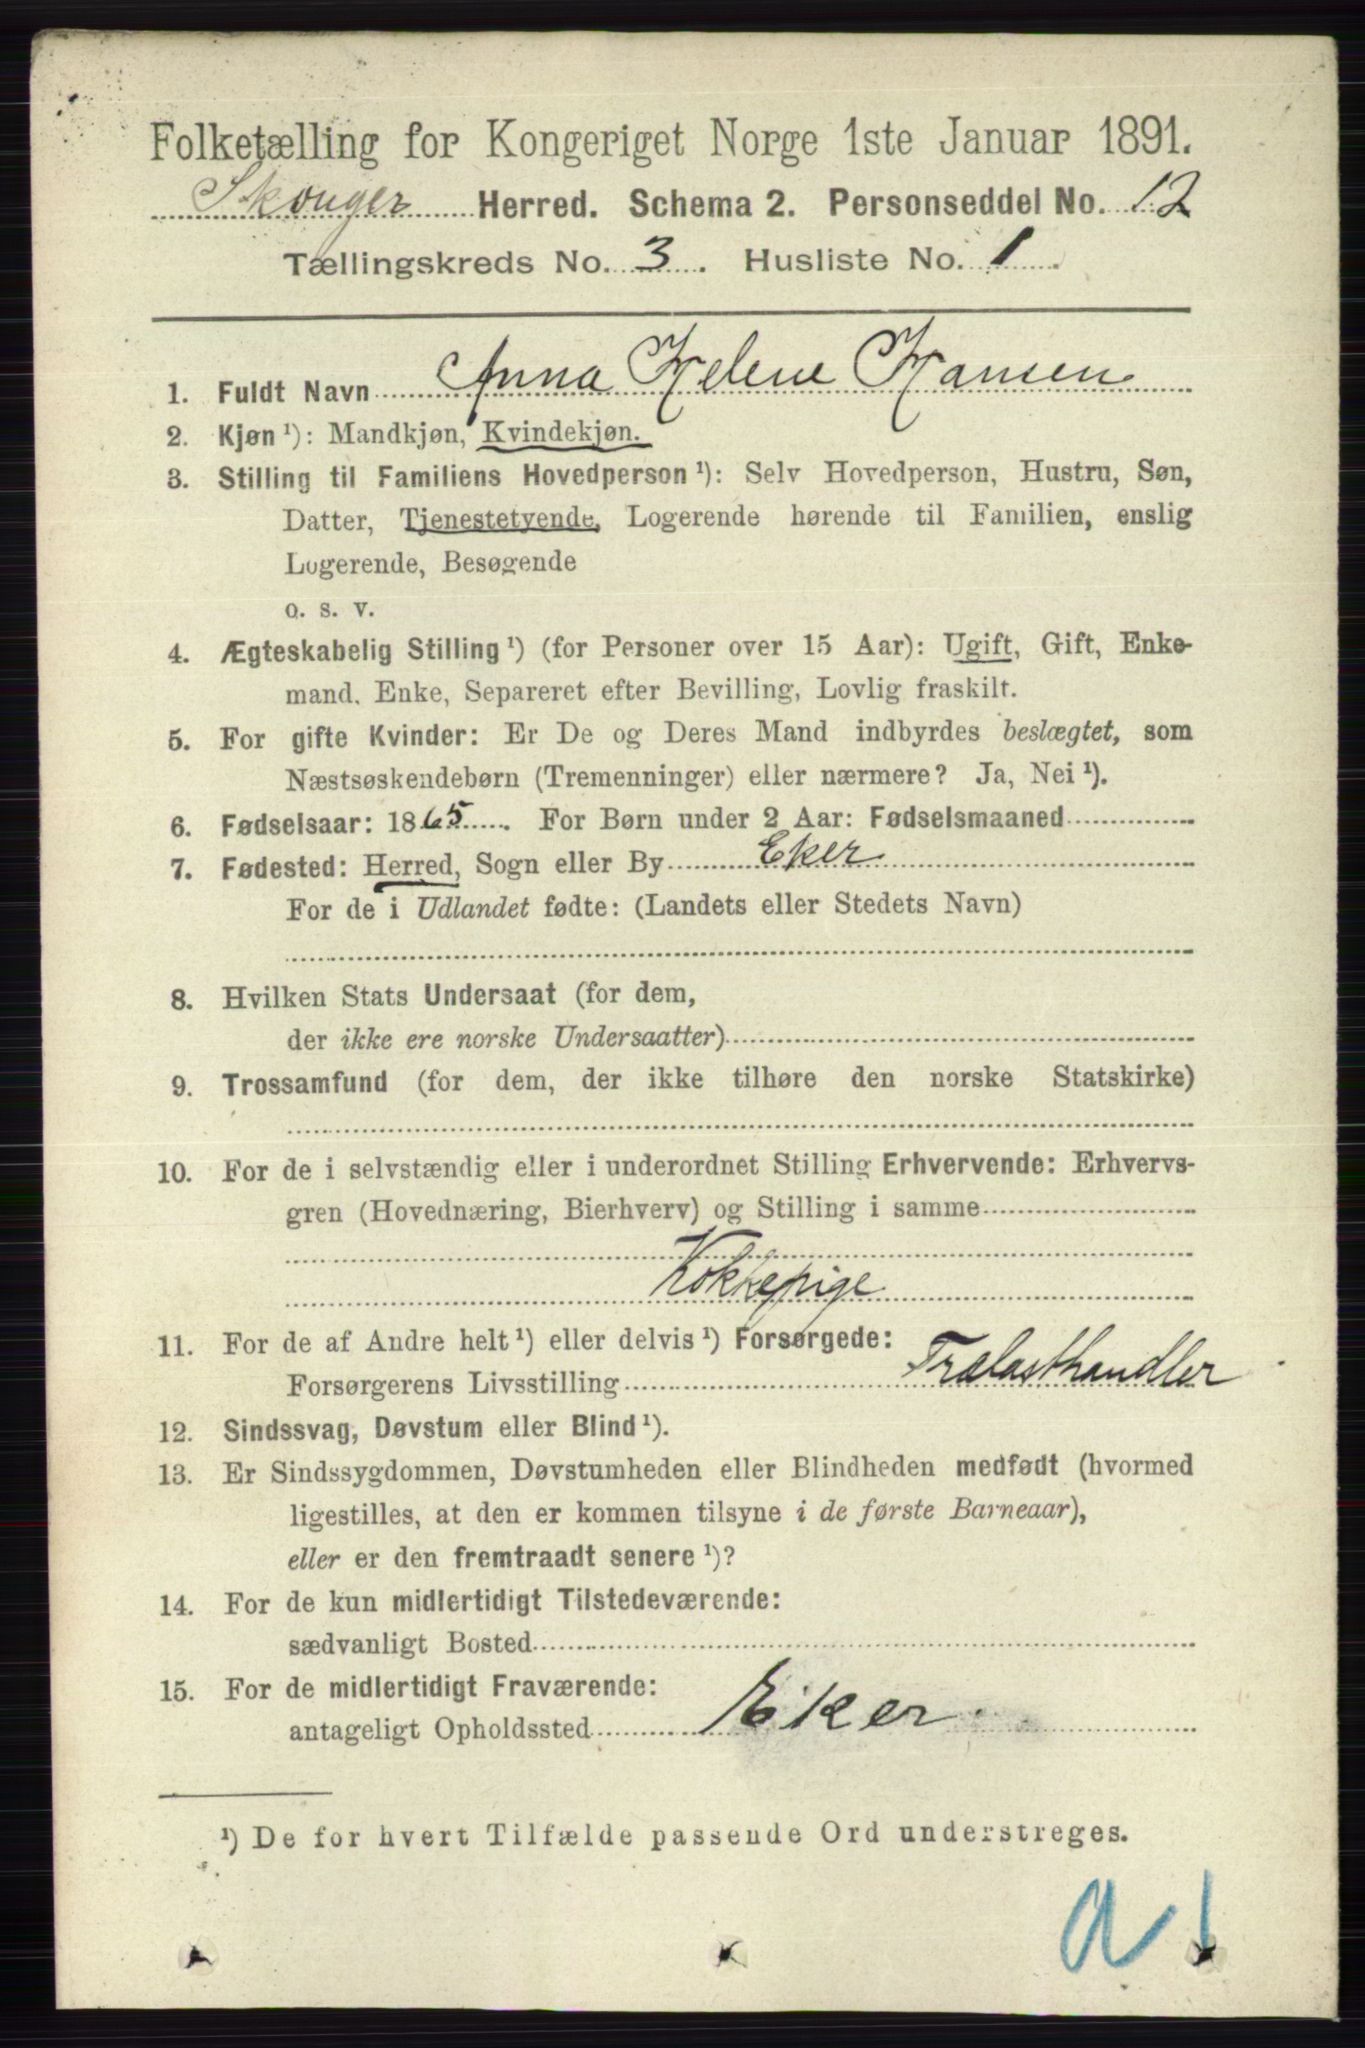 Folketælling for Kongeriget Norge 1ste Januar 1891.
Skouger Herred. Schema 2. Personseddel No. 12
Tællingskreds No. 3. Husliste No. 1.
1. Fuldt Navn Anna Helene Hansen
2. Kjøn ¹): Mandkjøn, Kvindekjøn.
3. Stilling til Familiens Hovedperson ¹): Selv Hovedperson, Hustru, Søn,
Datter, Tjenestetyende, Logerende hørende til Familien, enslig
Logerende, Besøgende
o. s. v.
4. Ægteskabelig Stilling ¹) (for Personer over 15 Aar): Ugift, Gift, Enke-
mand, Enke, Separeret efter Bevilling, Lovlig fraskilt.
5. For gifte Kvinder: Er De og Deres Mand indbyrdes beslægtet, som
Næstsøskendebørn (Tremenninger) eller nærmere? Ja, Nei ¹).
6. Fødselsaar: 1865. For Børn under 2 Aar: Fødselsmaaned
7. Fødested: Herred, Sogn eller By Eker
For de i Udlandet fødte: (Landets eller Stedets Navn)
8. Hvilken Stats Undersaat (for dem,
der ikke ere norske Undersaatter)
9. Trossamfund (for dem, der ikke tilhøre den norske Statskirke)
10. For de i selvstændig eller i underordnet Stilling Erhvervende: Erhvervs-
gren (Hovednæring, Bierhverv) og Stilling i samme
Kokkepige
11. For de af Andre helt ¹) eller delvis ¹) Forsørgede:
Forsørgerens Livsstilling Trælasthandler
12. Sindssvag, Døvstum eller Blind ¹).
13. Er Sindssygdommen, Døvstumheden eller Blindheden medfødt (hvormed
ligestilles, at den er kommen tilsyne i de første Barneaar),
eller er den fremtraadt senere ¹)?
14. For de kun midlertidigt Tilstedeværende:
sædvanligt Bosted
15. For de midlertidigt Fraværende:
antageligt Opholdssted Eker.
¹) De for hvert Tilfælde passende Ord understreges.
a 1